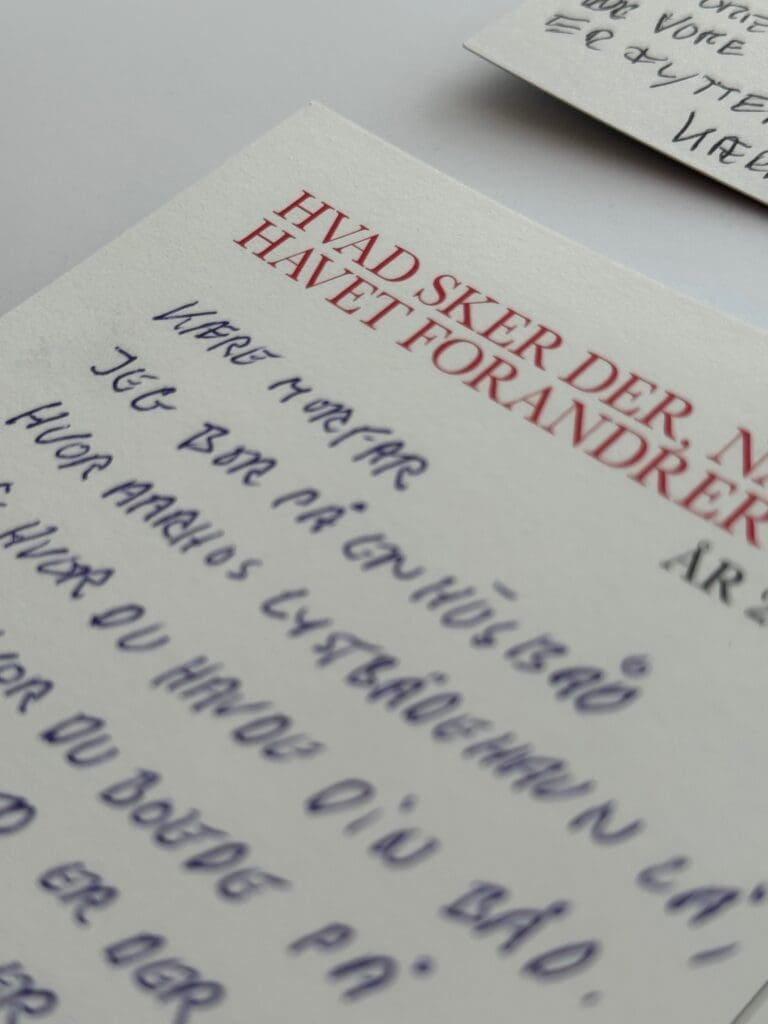 ER
VORE
ER
HVAD SKER DER,
HAVET FORANDRER
ÅR
KÆRE MORFAR
JEG BOR PÅ EN HUSBÅD
HVOR AARHUS LYSTBÅDEHAVN LÅ,
HVOR DU HAVDE DIN BÅD.
DU BOEDE PÅ
ER DER